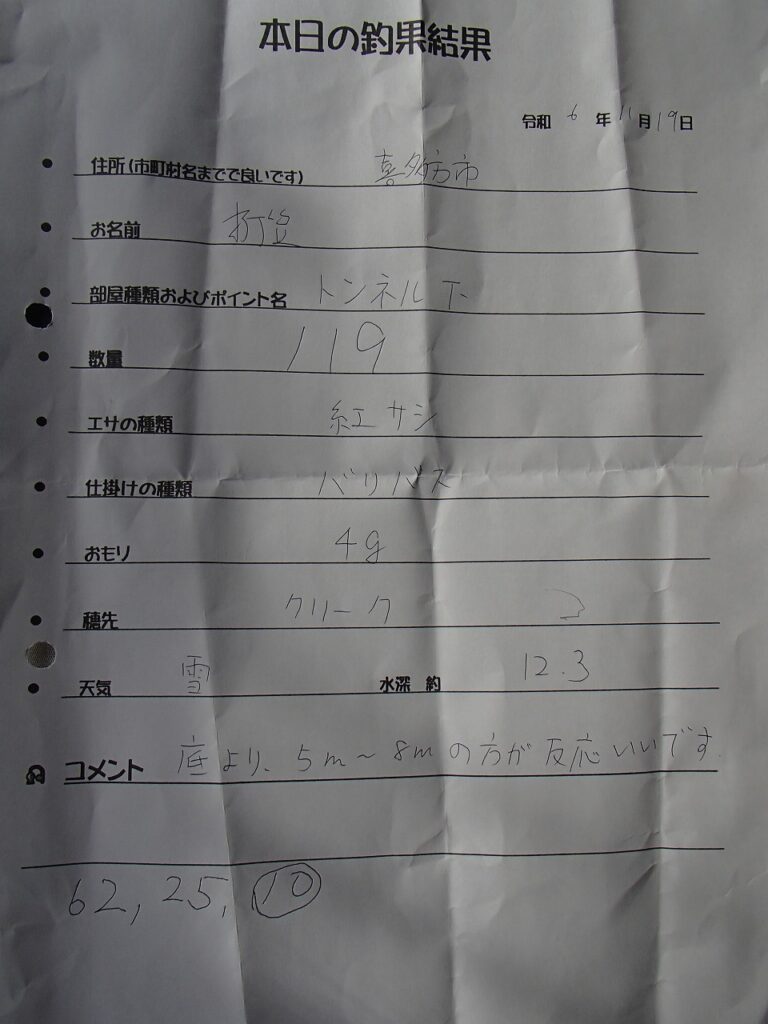 本日の釣果結果
令和 6 年 11 月 19 日
住所(市町村名までで良いです) 喜多方市
お名前
部屋種類およびポイント名 トンネル下
数量 119
エサの種類 紅サシ
仕掛けの種類 バリバス
おもり 4g
穂先 クリーク
天気 雪 水深 約 12.3
コメント 底より、5m~8mの方が反応いいです
62, 25, 10